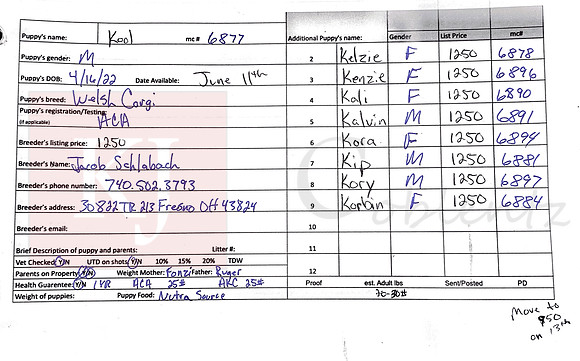 Puppy's name: Kool mc# 6877
Additional Puppy's name: Gender List Price mc#
Puppy's gender: M
2 Kelzie F 1250 6878
Puppy's DOB: 4/16/22 Date Available: June 11th
3 Kenzie F 1250 6896
Puppy's breed: Welsh Corgi
4 Kali F 1250 6890
Puppy's registration/Testing: ACA
(if applicable)
5 Kalvin M 1250 6891
Breeder's listing price: 1250
6 Kora F 1250 6894
Breeder's Name: Jacob Schlabach
7 Kip M 1250 6881
Breeder's phone number: 740.502.3793
8 Kory M 1250 6897
Breeder's address: 30822 TR 213 Fresno OH 43824
9 Korbin F 1250 6884
Breeder's email:
10
Brief Description of puppy and parents: Litter #:
11
Vet Checked: Y/N UTD on shots: Y/N 10% 15% 20% TDW
Parents on Property: Y/N Weight Mother: Fonzi Father: Ruger
12
Health Guarentee: Y/N 1 YR ACA 25# AKC 25#
Proof est. Adult lbs Sent/Posted PD
Weight of puppies: Puppy Food: Nutra Source
20-30#
Move to
950
on 13th
KJ Coblentz